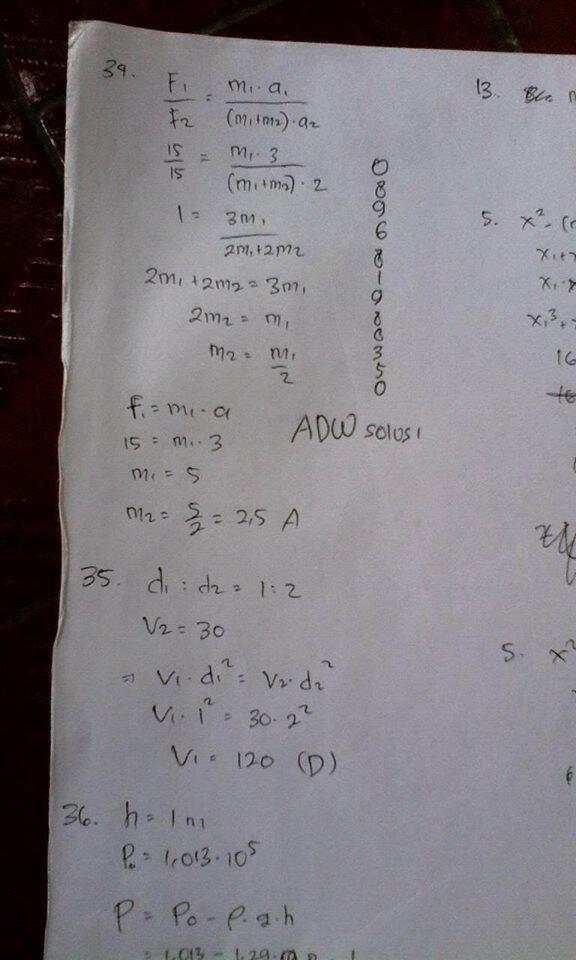 34.
F₁/F₂ = m₁·a₁/(m₁+m₂)·a₂
15/15 = m₁·3/(m₁+m₂)·2
1 = 3m₁/2m₁+2m₂
2m₁+2m₂ = 3m₁
2m₂ = m₁
m₂ = m₁/2
f₁ = m₁·a
15 = m₁·3
m₁ = 5
m₂ = 5/2 = 2,5 A
0
8
9
6
8
1
9
8
8
3
5
0
ADW solusi
35. d₁ : d₂ = 1:2
V₂ = 30
⇒ V₁·d₁² = V₂·d₂²
V₁·1² = 30·2²
V₁ = 120 (D)
36. h = 1 m
P₀ = 1,013·10⁵
P = P₀ - ρ·g·h
13.
5. x² - (
x₁+
x₁·x
x₁³+
16
5. x²